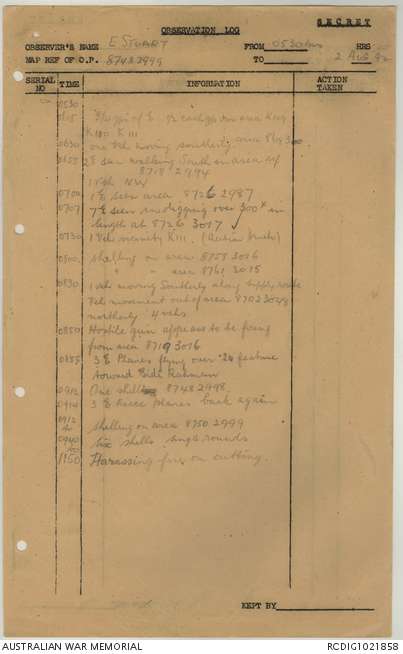 SECRET
OBSERVATION LOG
OBSERVER'S NAME E STUART FROM 0530 hrs HRS
MAP REF OF O.P. 87482999 TO 2 Aug 42
SERIAL NO TIME INFORMATION ACTION TAKEN
0530
K110 K111
0630 one veh moving southerly area
0655 2 E seen walking South in area
8718 2994
0700 1 E seen area 8726 2987
0707 7 E seen digging over 300x in
length at 8726 3017
0730 1 veh vicinity K111.
0800 shelling on area 8755 3016
" " area 8761 3015
0830 1 veh moving Southerly along supply route
Veh movement out of area 8702
northerly 4 vehs
0850 Hostile gun appears to be firing
from area 8719 3016
0855 3 E Planes flying over 24 feature
toward Sidi Rahman
0912 One shell 8748 2998
0914 3 E Recce planes back again
0917 shelling on area 8750 2999
0940 six shells single rounds
1150 Harassing fire on cutting.
KEPT BY
AUSTRALIAN WAR MEMORIAL RCDIG1021858